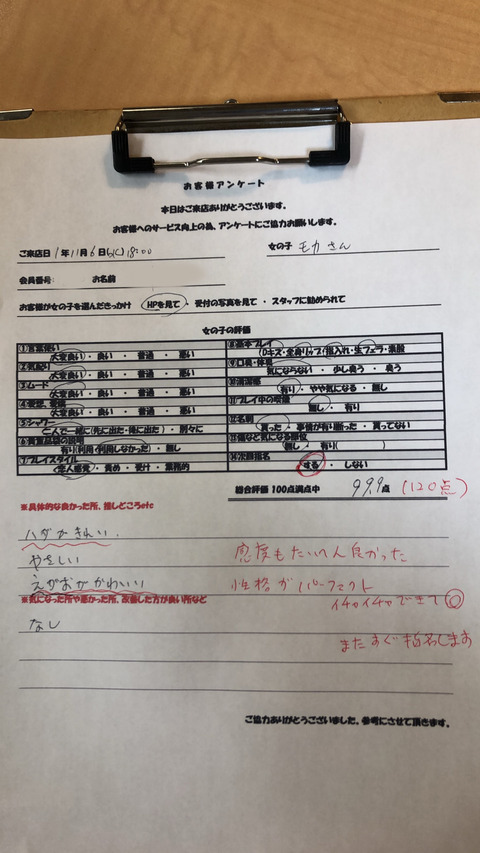 お客様アンケート
本日はご来店ありがとうございます。
お客様へのサービス向上の為、アンケートにご協力お願いします。
ご来店日 1年11月6日(水) 18:00 女の子 モカさん
会員番号: お名前
お客様が女の子を選んだきっかけ HPを見て・受付の写真を見て・スタッフに勧められて
女の子の評価
大変良い・良い・普通・悪い
大変良い・良い・普通・悪い
③ムード
大変良い・良い・普通・悪い
大変良い・良い・普通・悪い
⑤シャワー
二人で一緒に(先に出た・後に出た)・別々に
有り(利用・利用しなかった)・無し
⑦プレイスタイル
恋人感覚・責め・受け・業務的
⑧基本プレイ
(Dキス・全身リップ・指入れ・生フェラ・素股
気にならない・少し臭う・臭う
有り・やや気になる・無し
⑪プレイ中の喫煙
無し・有り
⑫名刺
貰った・事情が有り断った・貰ってない
⑬傷など気になる部位
無し・有り( )
⑭次回指名
する・しない
総合評価 100点満点中 99.9点 (120点)
※具体的な良かった所、推しどころetc
ハダがきれい.
やさしい 感度もたいへん良かった
えがおがかわいい 性格がパーフェクト
※気になった所や悪かった所、改善した方が良い所など イチャイチャできて◎
なし またすぐ指名します
ご協力ありがとうございました。参考にさせて頂きます。